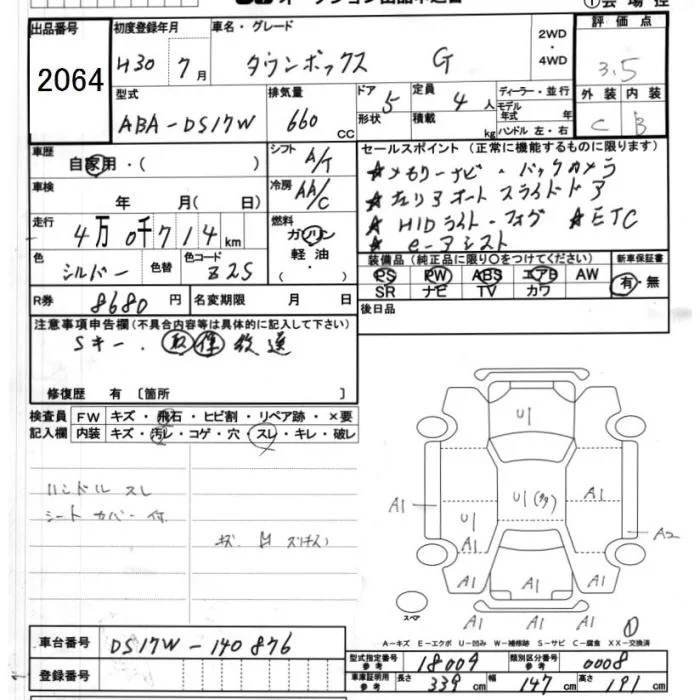 出品番号 2064
初度登録年月 H30 7月
車名・グレード タウンボックス G
2WD・4WD
評価点 3.5
型式 ABA-DS17W
排気量 660 CC
ドア 5 形状
定員 4人 積載 kg
ディーラー・並行
モデル年式 年
ハンドル 左・右
外装 C 内装 B
車歴 自家用・( )
シフト A/T
車検 年 月( 日)
冷房 AA/C
走行 4万0千714km
燃料 ガソリン 軽油 ( ・ )
色 シルバー 色替 色コード Z2S
R券 8680円 名変期限 月 日
セールスポイント (正常に機能するものに限ります)
★メモリーナビ・バックカメラ
★左リアオートスライドドア
★HIDライト・フォグ ★ETC
★e-アシスト
装備品 (純正品に限り○をつけてください) 新車保証書
PS PW ABS エアB AW 有・無
SR ナビ TV カワ
後日品
注意事項申告欄(不具合内容等は具体的に記入して下さい)
Sキー、取保後送
修復歴 有 [箇所 ]
検査員 FW キズ・飛石・ヒビ割・リペア跡・×要
記入欄 内装 キズ・汚レ・コゲ・穴・スレ・キレ・破レ
ハンドル スレ
シート カバー 付
U1
U1(多)
A1
A1
U1
A1
A1
A2
A1
A1
A1
A1
A1
A1
スペア
①
A-キズ E-エクボ U-凹み W-補修跡 S-サビ C-腐食 XX-交換済
車台番号 DS17W-140876
登録番号
型式指定番号 参考 18009 類別区分番号 参考 0008
車庫証明用 参考 長さ 339cm 幅 147cm 高さ 191cm